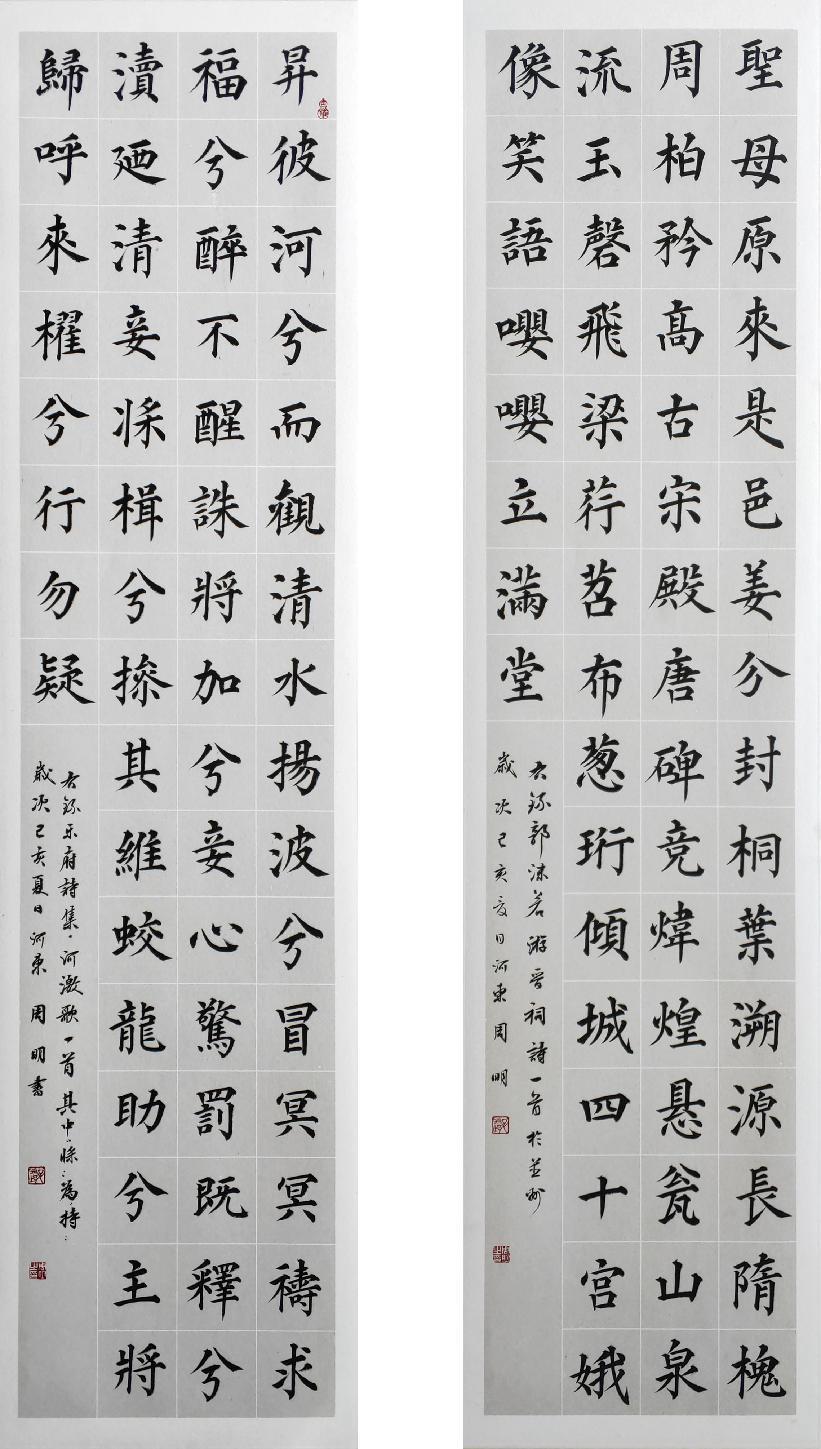 聖母原來是邑姜分封桐葉溯源長隋槐
周柏矜高古宋殿唐碑竞煒煌悬瓮山泉
流玉磬飛梁荇苕布葱珩傾城四十宫娥
像笑語嚶嚶立滿堂
右錄郭沫若游晋祠詩一首於並州
歲次己亥夏日河東周明
昇彼河兮而觀清水揚波兮冒冥冥禱求
福兮醉不醒誅將加兮妾心驚罰既釋兮
瀆廼清妾楫兮操其維蛟龍助兮主將
歸呼來櫂兮行勿疑
右錄樂府詩集河激歌一首其中為持
歲次己亥夏日河東周明書